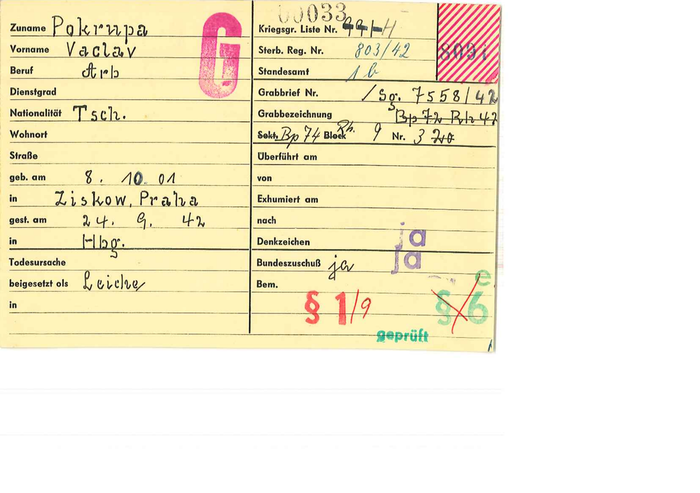 00033
Zuname Pokrupa
Vorname Vaclav
Beruf Arb
Dienstgrad
Nationalität Tsch.
Wohnort
Straße
geb. am 8. 10. 01
in Ziskow, Praha
gest. am 24. 9. 42
in Hbg.
Todesursache
beigesetzt als Leiche
in
G
Kriegsgr. Liste Nr.
Sterb. Reg. Nr. 803/42
Standesamt 1b
Grabbrief Nr. /Sg. 7558/42
Grabbezeichnung Bp 72 Rh 42
Sekt. Bp 74 Block Rh. 9 Nr. 3
Überführt am
von
Exhumiert am
nach
Denkzeichen ja
Bundeszuschuß ja ja
Bem.
e
§ 1/9 § 6
geprüft